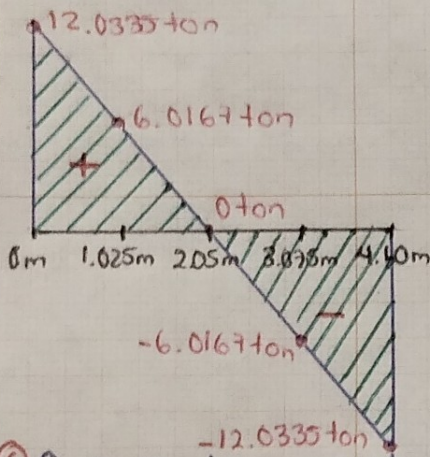 12.0335 ton
6.0167 ton
+
0 ton
0m 1.025m 2.05m 3.075m 4.10m
-
-6.0167 ton
-12.0335 ton